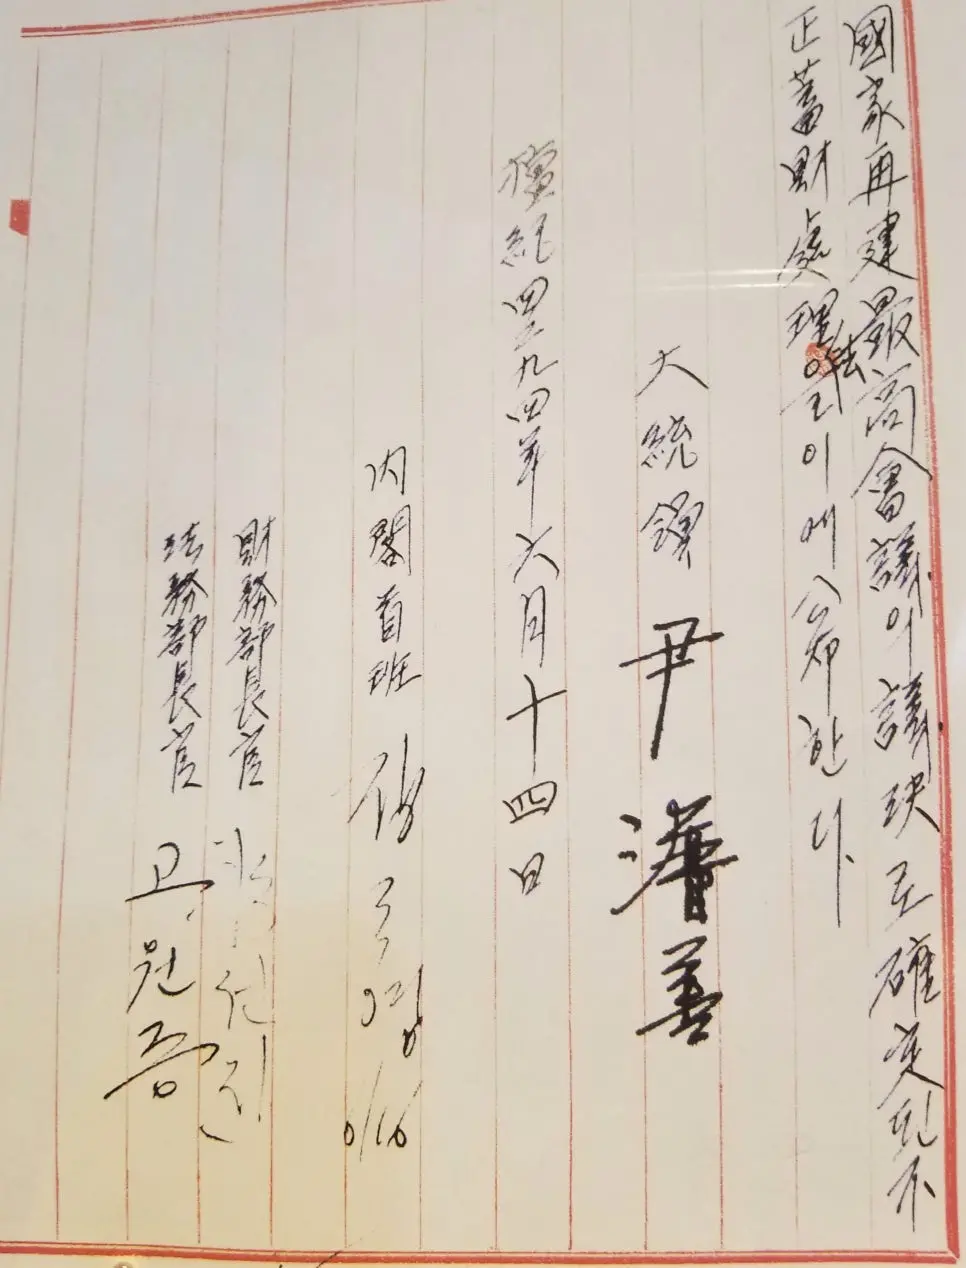 國家再建最高會議의 議決로 確定된 不
正蓄財處理法을 이에 公布한다.
大統領 尹潽善
檀紀四二九四年六月十四日
內閣首班 장도영 6/16
財務部長官 백선진
法務部長官 고원증